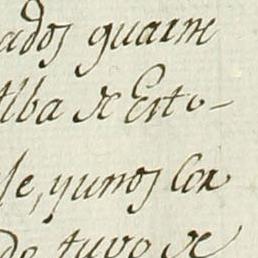 ados guarne
Alba de Esto-
le, y unos Cor
do tuvo de